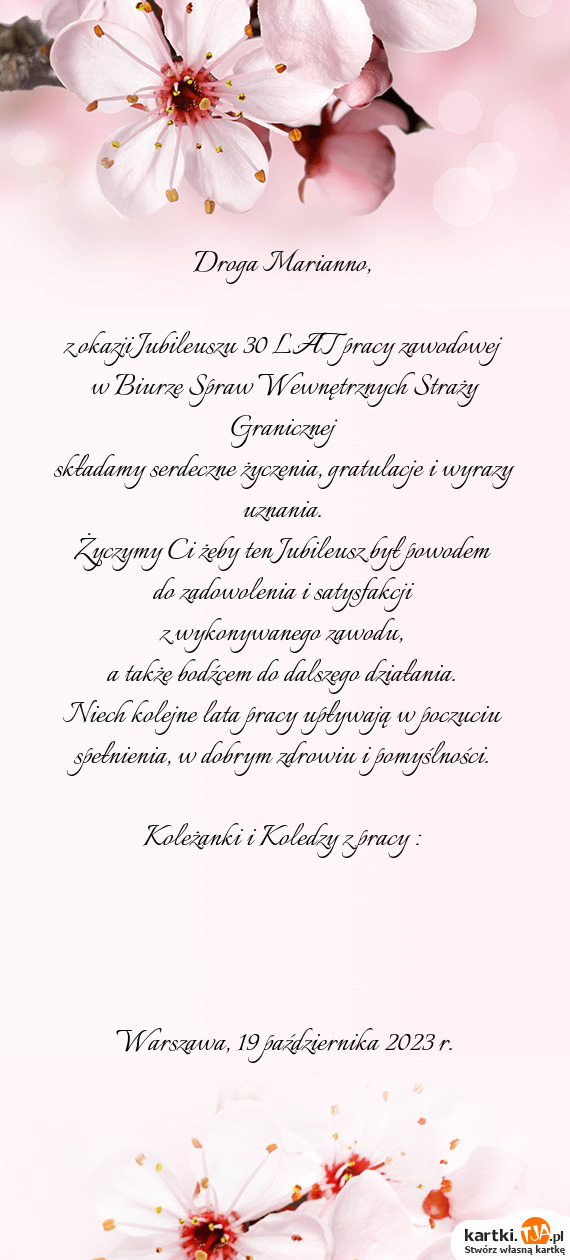 Droga Marianno,
z okazji Jubileuszu 30 LAT pracy zawodowej
w Biurze Spraw Wewnętrznych Straży
Granicznej
składamy serdeczne życzenia, gratulacje i wyrazy
uznania.
Życzymy Ci żeby ten Jubileusz był powodem
do zadowolenia i satysfakcji
z wykonywanego zawodu,
a także bodźcem do dalszego działania.
Niech kolejne lata pracy upływają w poczuciu
spełnienia, w dobrym zdrowiu i pomyślności.
Koleżanki i Koledzy z pracy :
Warszawa, 19 października 2023 r.
kartki.TJA.pl
Stwórz własną kartkę